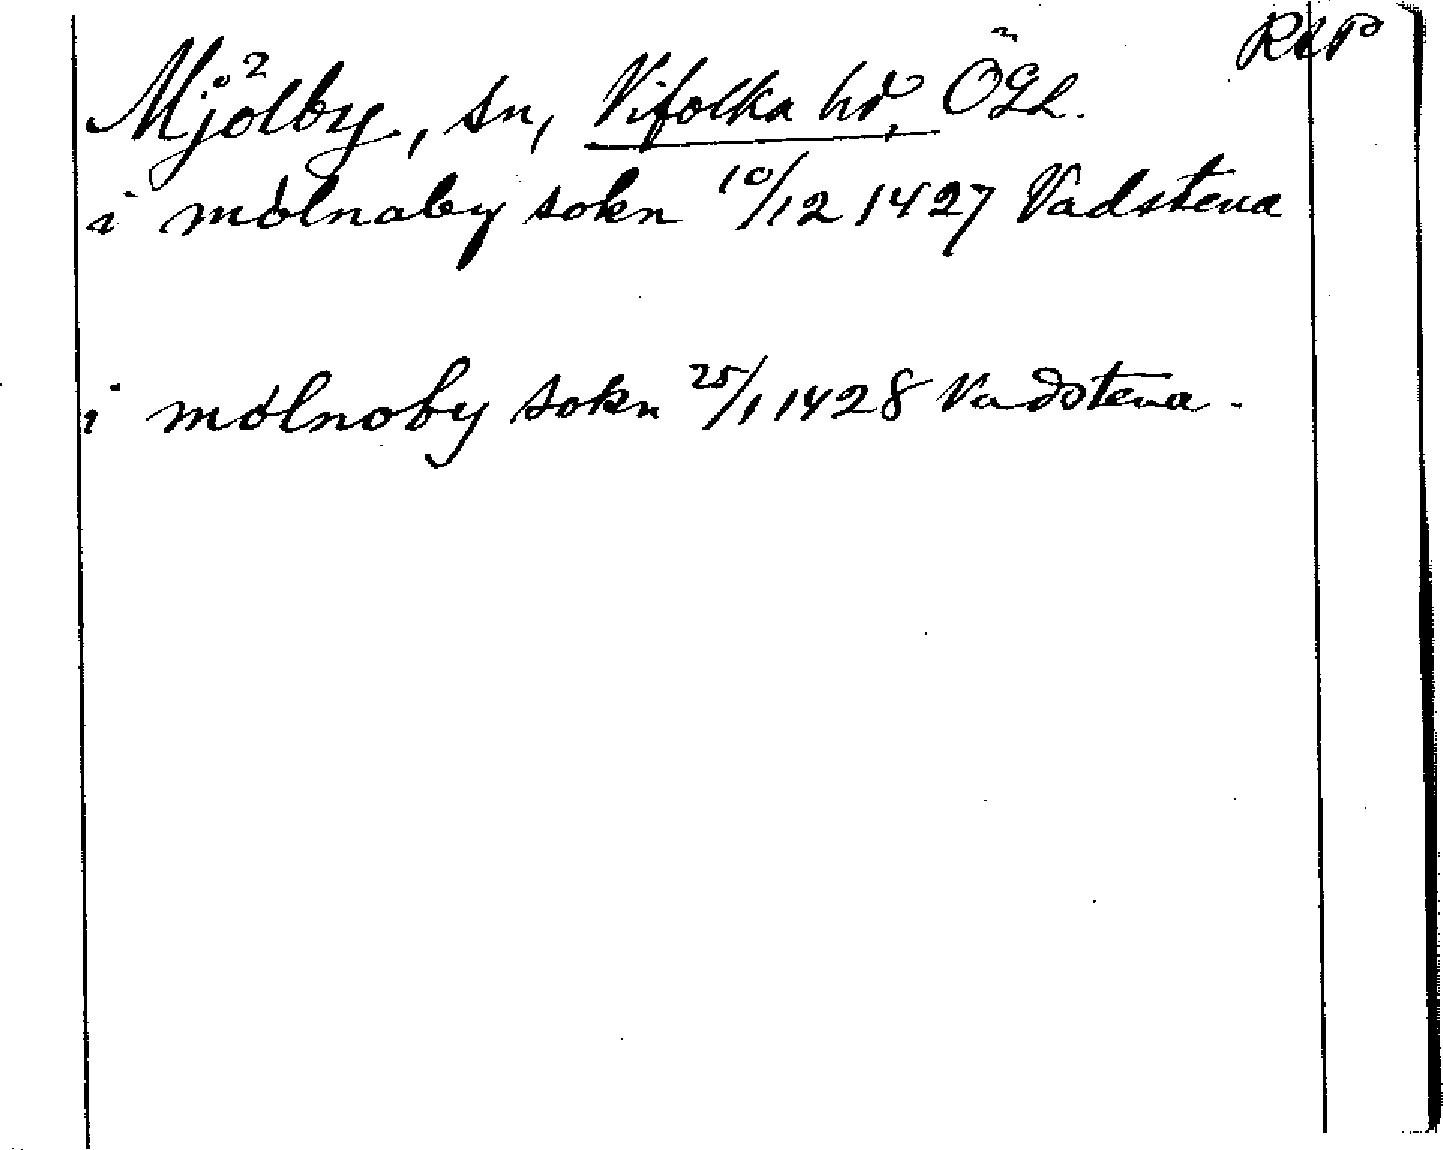 RAP
Mjölby, sn, Vifolka hd, ÖGL.
i mólnaby sokn 10/12 1427 Vadstena
i mólnoby sokn 25/1 1428 Vadstena.